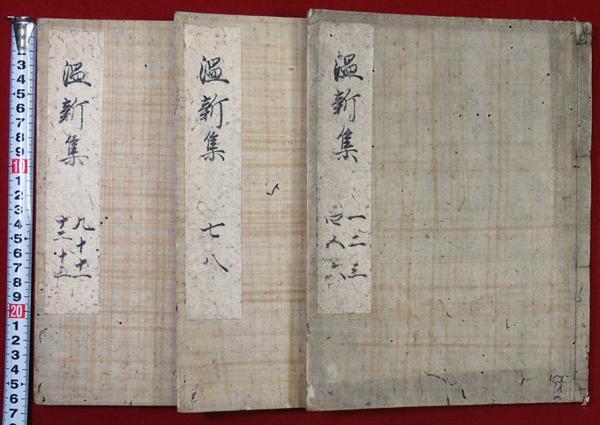 温新集
一二三
四五六
温新集
七八
温新集
九十十一
十二十三
3
4
5
6
7
8
9
10
1
2
3
4
5
6
7
8
9
20
1
2
3
4
5
6
7